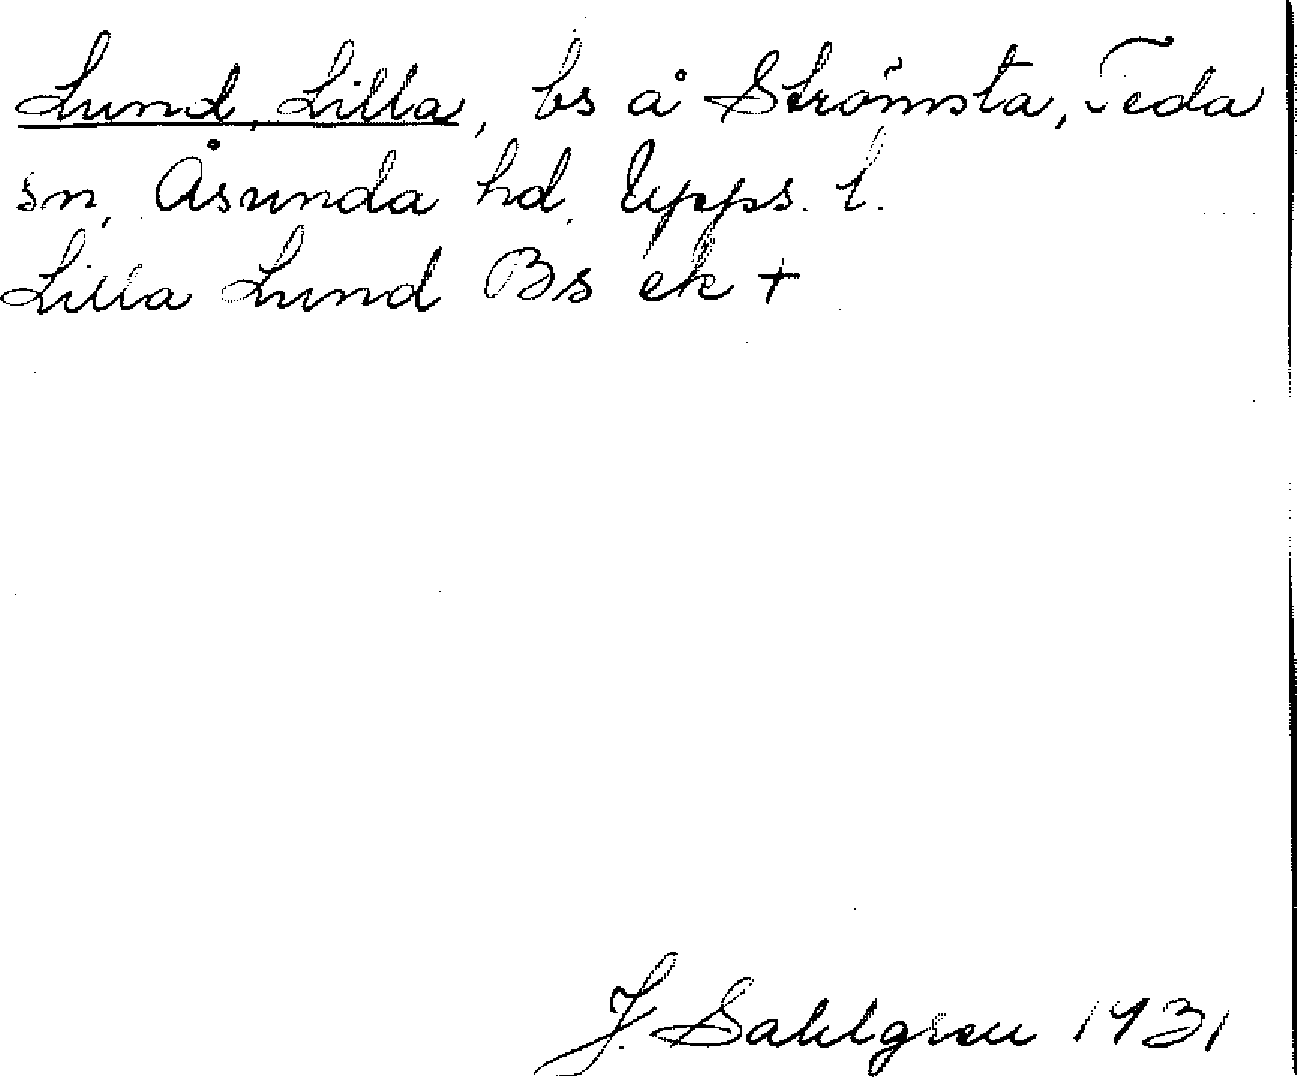 Lund, Lilla, bs å Strömsta, Teda
sn, Åsunda hd, Upps. l.
Lilla Lund Bs ek +
J. Sahlgren 1931